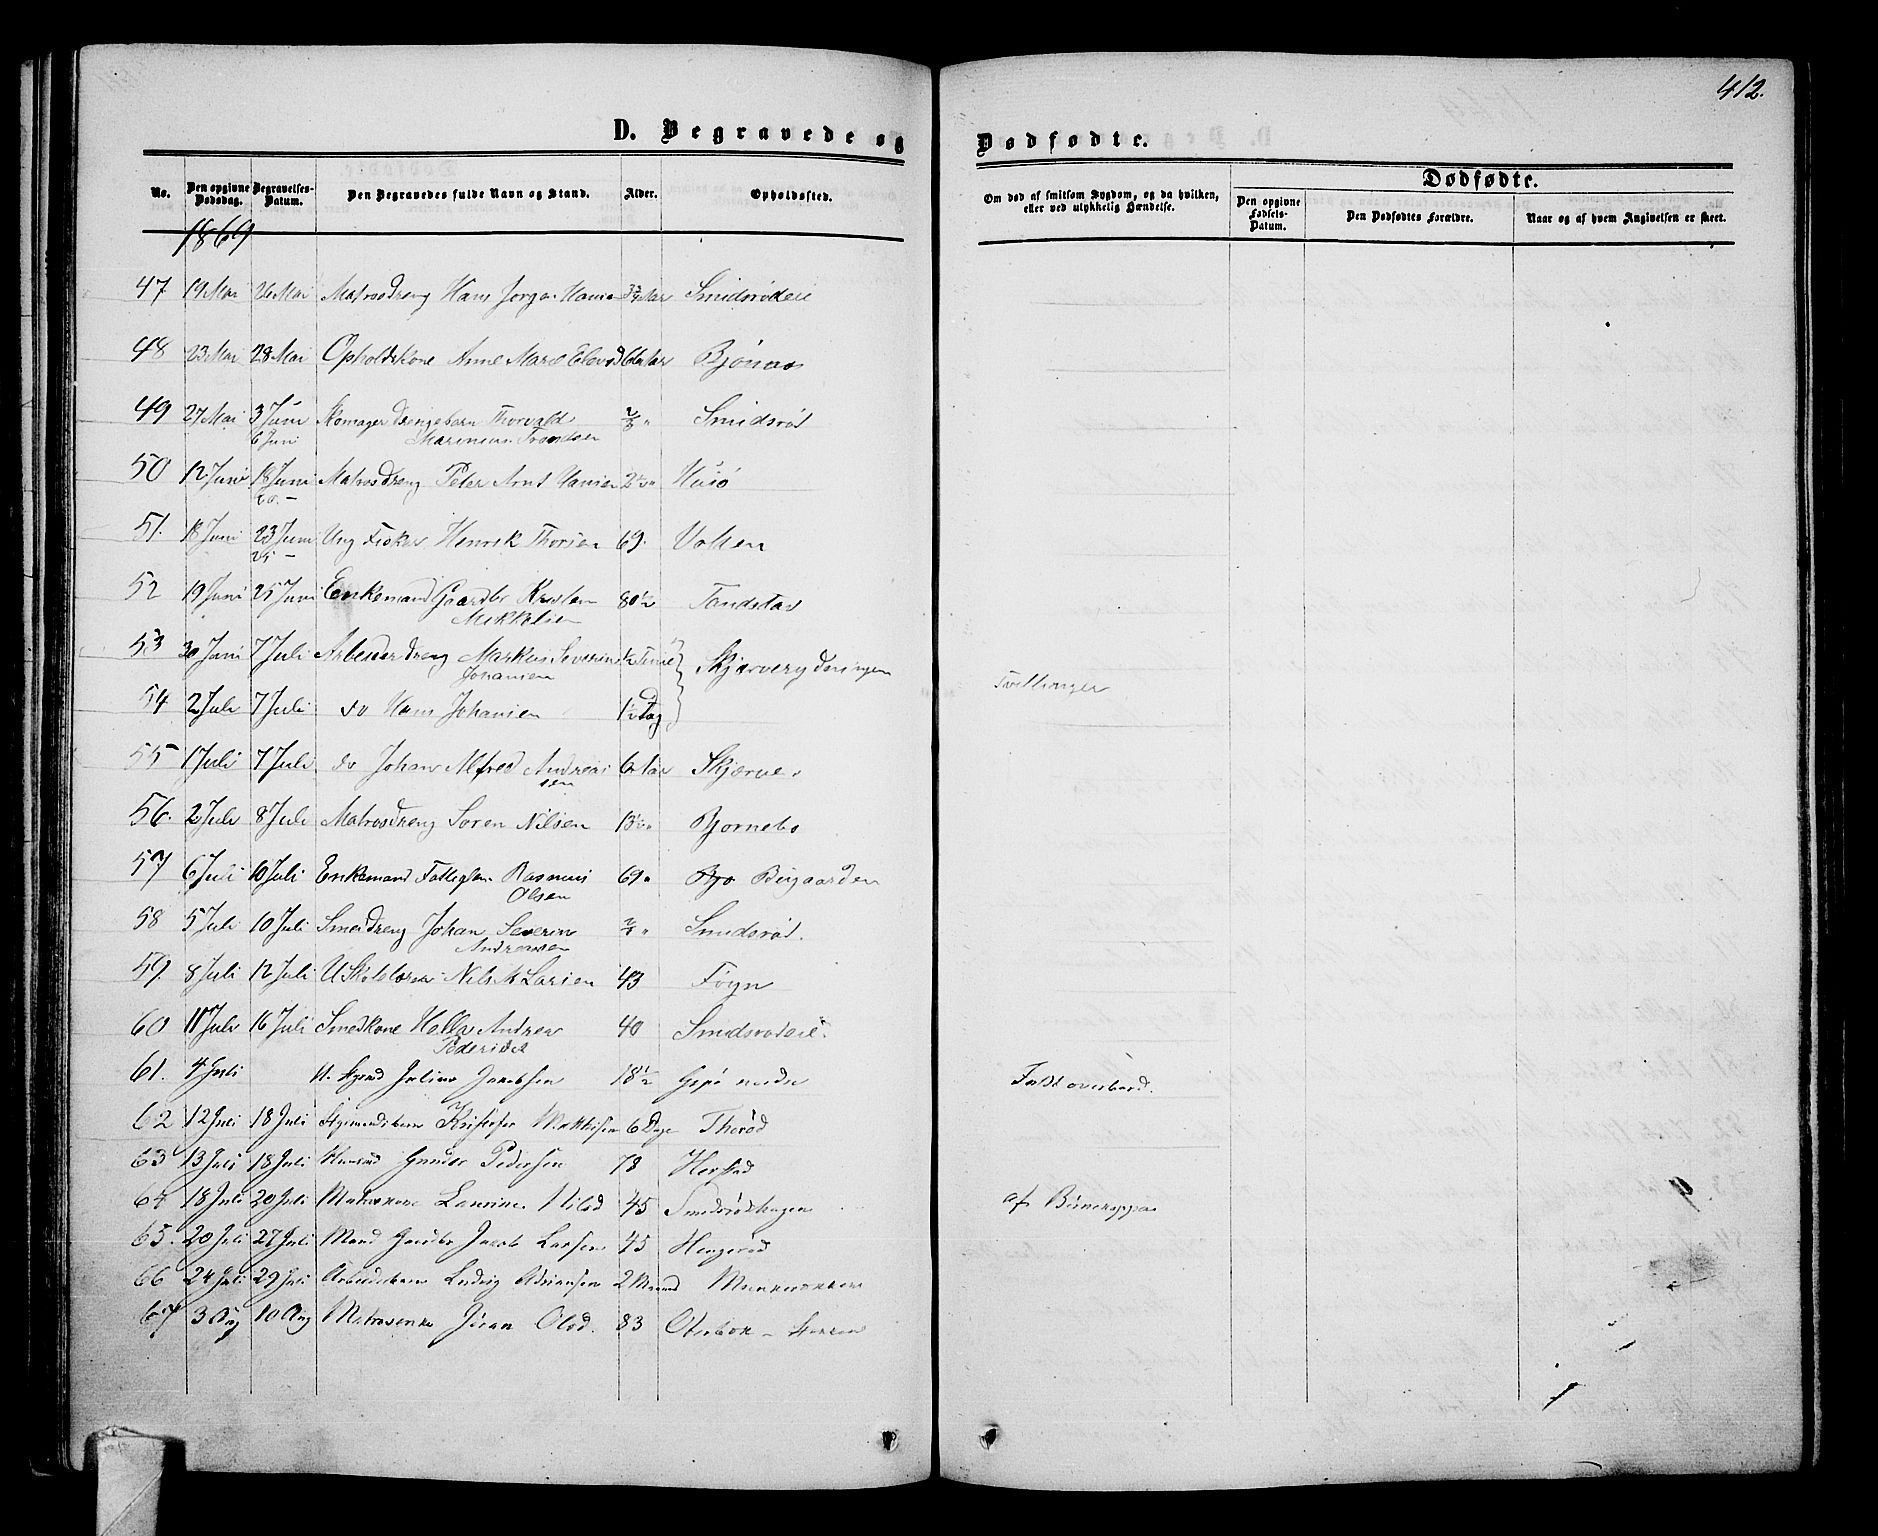 412.
D. Begravede og Dødfødte.
No. Den opgivne Dødsdag. Begravelses-Datum. Den Begravedes fulde Navn og Stand. Alder. Opholdssted. Om død af smitsom Sygdom, og da hvilken, eller ved ulykkelig Hændelse. Dødfødte.
Den opgivne Fødsels-Datum. Den Dødfødtes Forældre. Naar og af hvem Angivelsen er skeet.
1869
47 19 Mai 26 Mai Matrosdreng Hans Jørgen Hansen Smidsrødeie
48 23 Mai 28 Mai Opholdskone Anne Marie 64 Aar Bjønnes
49 27 Mai 3 Juni Skomager Drengebarn Thorvald Smidsrød
6 Juni Marinius
50 12 Juni 18 Juni Matrosdreng Peter Arnt Hansen Husø
20. –
51. 18 Juni 23 Juni Ung Fisker Henrik Thorsen 69. Volsen
25 –
52 19 Juni 25 Juni Enkemand Gaardbr Kristen 80 1/2
Mikkelsen
53 30 Juni 7 Juli Arbeider dreng Markus Severin 1/2 Time
Johansen
Tvillinger
54 2 Juli 7 Juli do Hans Johansen 1 1/2 Dag
55 1 Juli 7 Juli do Johan Alfred Andreas 6 Aar Skjerve
sen
56. 2 Juli 8 Juli Matrosdreng Søren Nilsen Bjørnebo
57 6 Juli 10 Juli Enkemand Fattiglem Rasmus 69 "
Olsen
58 5 Juli 10 Juli Smeddreng Johan Severin Smidsrød.
Andreasen
59. 8 Juli 12 Juli Nils M Larsen 43 Føyn
60 11 Juli 16 Juli Smedkone Helle Andrea 40 Smidsrødeie
Pedersdat
61. 4 Juli Julius Jacobsen 18 1/2 Fald overbord.
62 12 Juli 18 Juli Kristofer Matthisen 6 Dage Thorød
63 13 Juli 18 Juli Gunder Pedersen 78 Herstad
64 18 Juli 20 Juli Matroskone Laurine Nilsd 45 Smidsrødhagen af
65. 20 Juli 27 Juli Mand Gaardbr Jacob Larsen 45 Hengsrød
66 24 Juli 29 Juli Arbeidsbarn Ludvig Adriansen 2 Maaned
67 3 Aug 10 Aug Matrosenke Olsd. 83